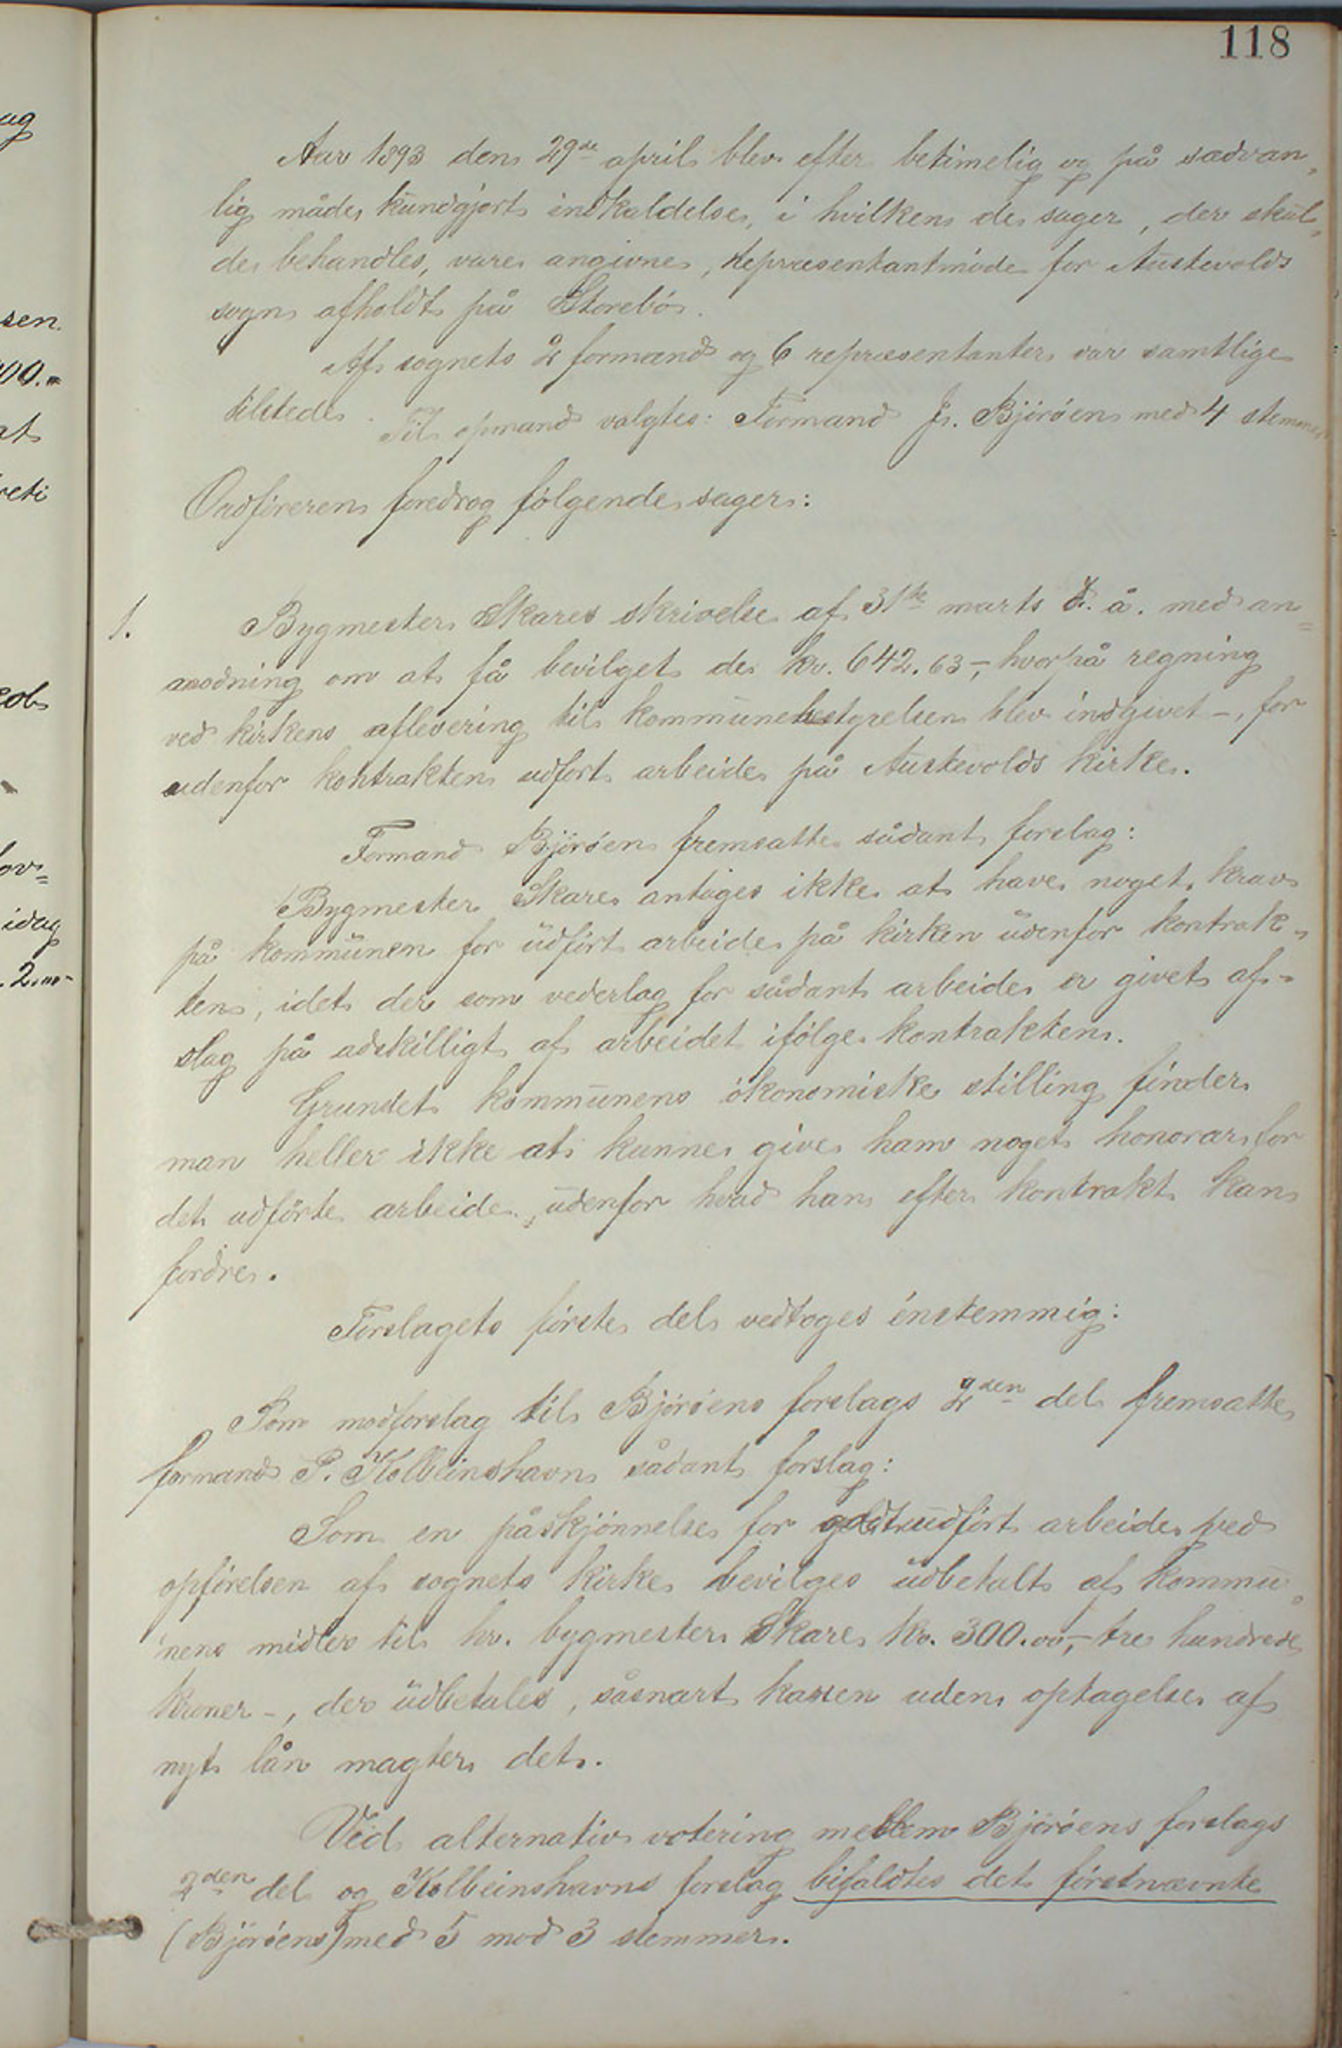 118
Aar 1893 den 29de april blev efter betimelig og på sædvan„
lig måde kundgjort indkaldelse, i hvilken de sager, der skul„
de behandles, vare angivne, repræsentantmöde for Austevolds
sogn afholdt på Storebö.
Af sognets 2 formænd og 6 repræsentanter var samtlige
tilstede. Til opmand valgtes: Formand J. Björöen med 4 stemmer
Ordföreren foredrog fölgende sager:
1. Bygmester Skares skrivelse af 31te marts d. å. med an=
modning om at få bevilget de kr. 642.63,- hvorpå regning
ved kirkens aflevering til kommunebestyrelsen blev indgivet -, for
udenfor kontrakten udfört arbeide på Austevolds kirke.
Formand Björöen fremsatte sådant forslag:
Bygmester Skare antages ikke at have noget krav
på kommunen for udfört arbeide på kirken udenfor kontrak-
ten, idet der som vederlag for sådant arbeide er givet af-
slag på adskilligt af arbeidet ifölge kontrakten.
Grundet kommunens ökonomiske stilling finder
man heller ikke at kunne give ham noget honorar for
det udförte arbeide, udenfor hvad han efter kontrakt kan
fordre.
Forslagets förste del vedtoges énstemmig:
Som modforslag til Björöens forslags 2den del fremsatte
formand P. Kolbeinshavn sådant forslag:
Som en påskjönnelse for godt udfört arbeide ved
opförelsen af sognets kirke bevilges udbetalt af kommu„
nens midler til hr. bygmester Skare kr. 300.00,- tre hundrede
kroner -, der udbetales, såsnart kassen uden optagelse af
nyt lån magter det.
Ved alternativ votering mellem Björöens forslags
2den del og Kolbeinshavns forslag bifaldtes det förstnævnte
(Björöens) med 5 mod 3 stemmer.